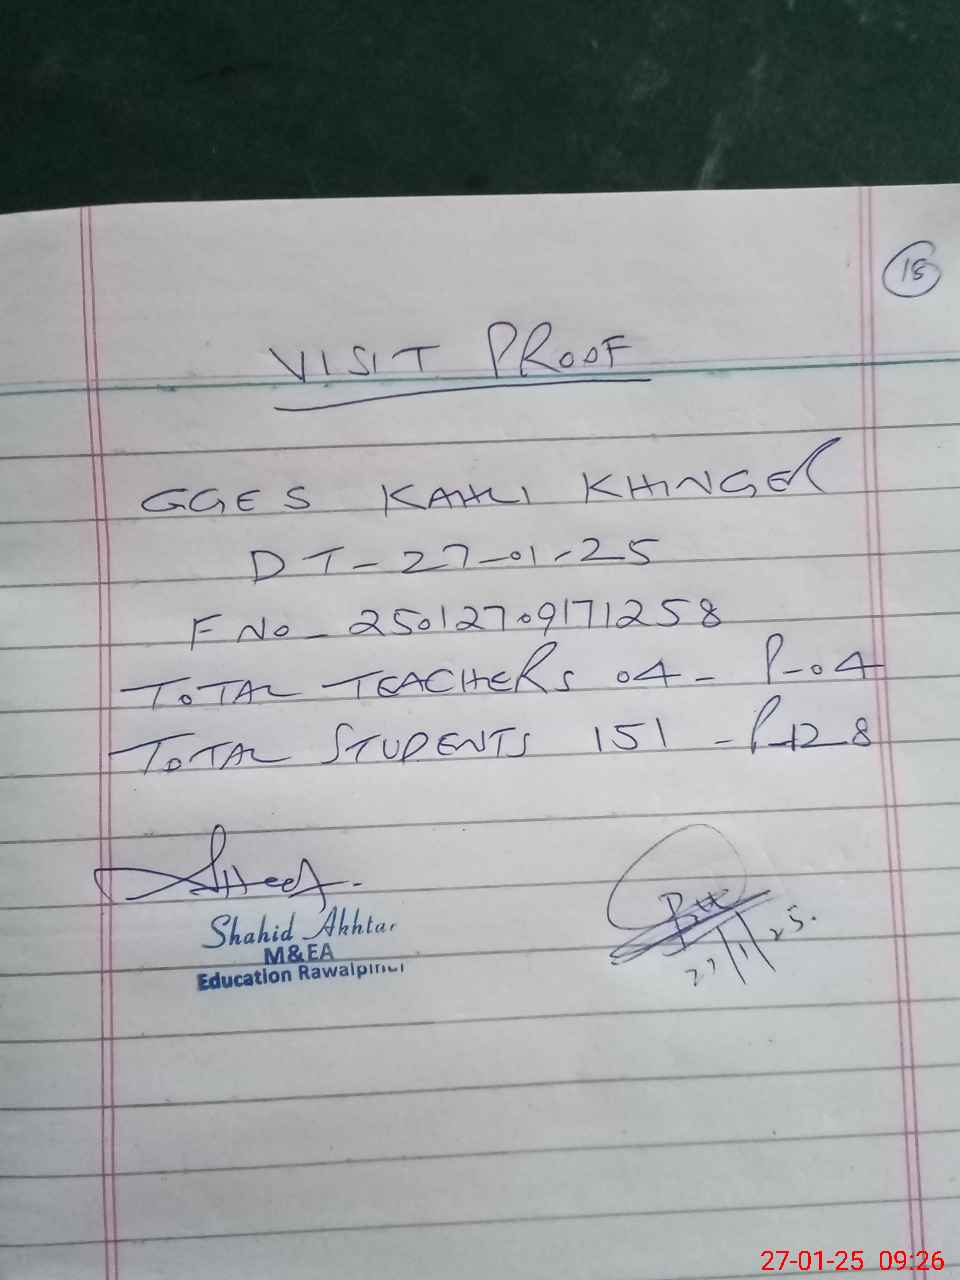 18
VISIT PROOF
GGES KAHLI KHINGER
DT-27-01-25
F No- 25012709171258
TOTAL TEACHERS 04- P-04
TOTAL STUDENTS 151 - P-128
Shahid Akhtar
M&EA
Education Rawalpindi
27/1/25.
27-01-25 09:26